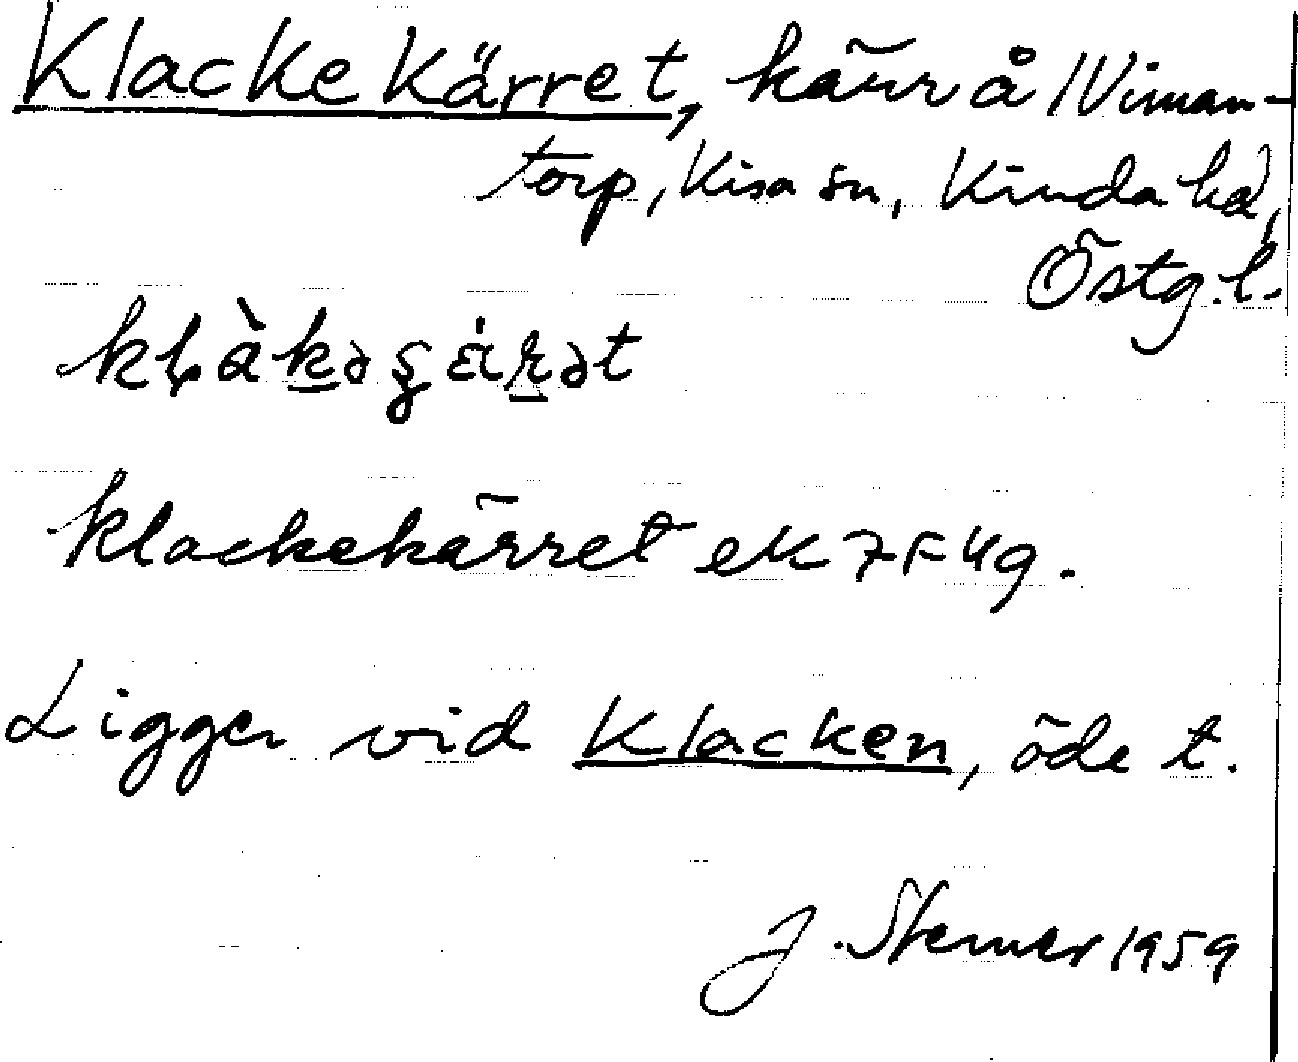 Klackekärret, kärr å /Viman-
torp, Kisa sn, Kinda hd,
Östg. l.
klackekärret ek 7F4g.
Ligger vid Klacken, öde t.
J. Stemer 1959